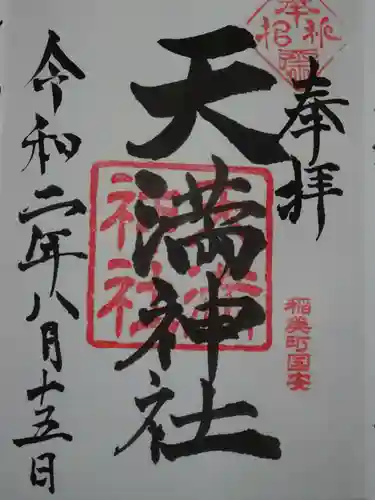 奉拝
稲美町国安
天満神社
天満神社
令和二年八月十五日